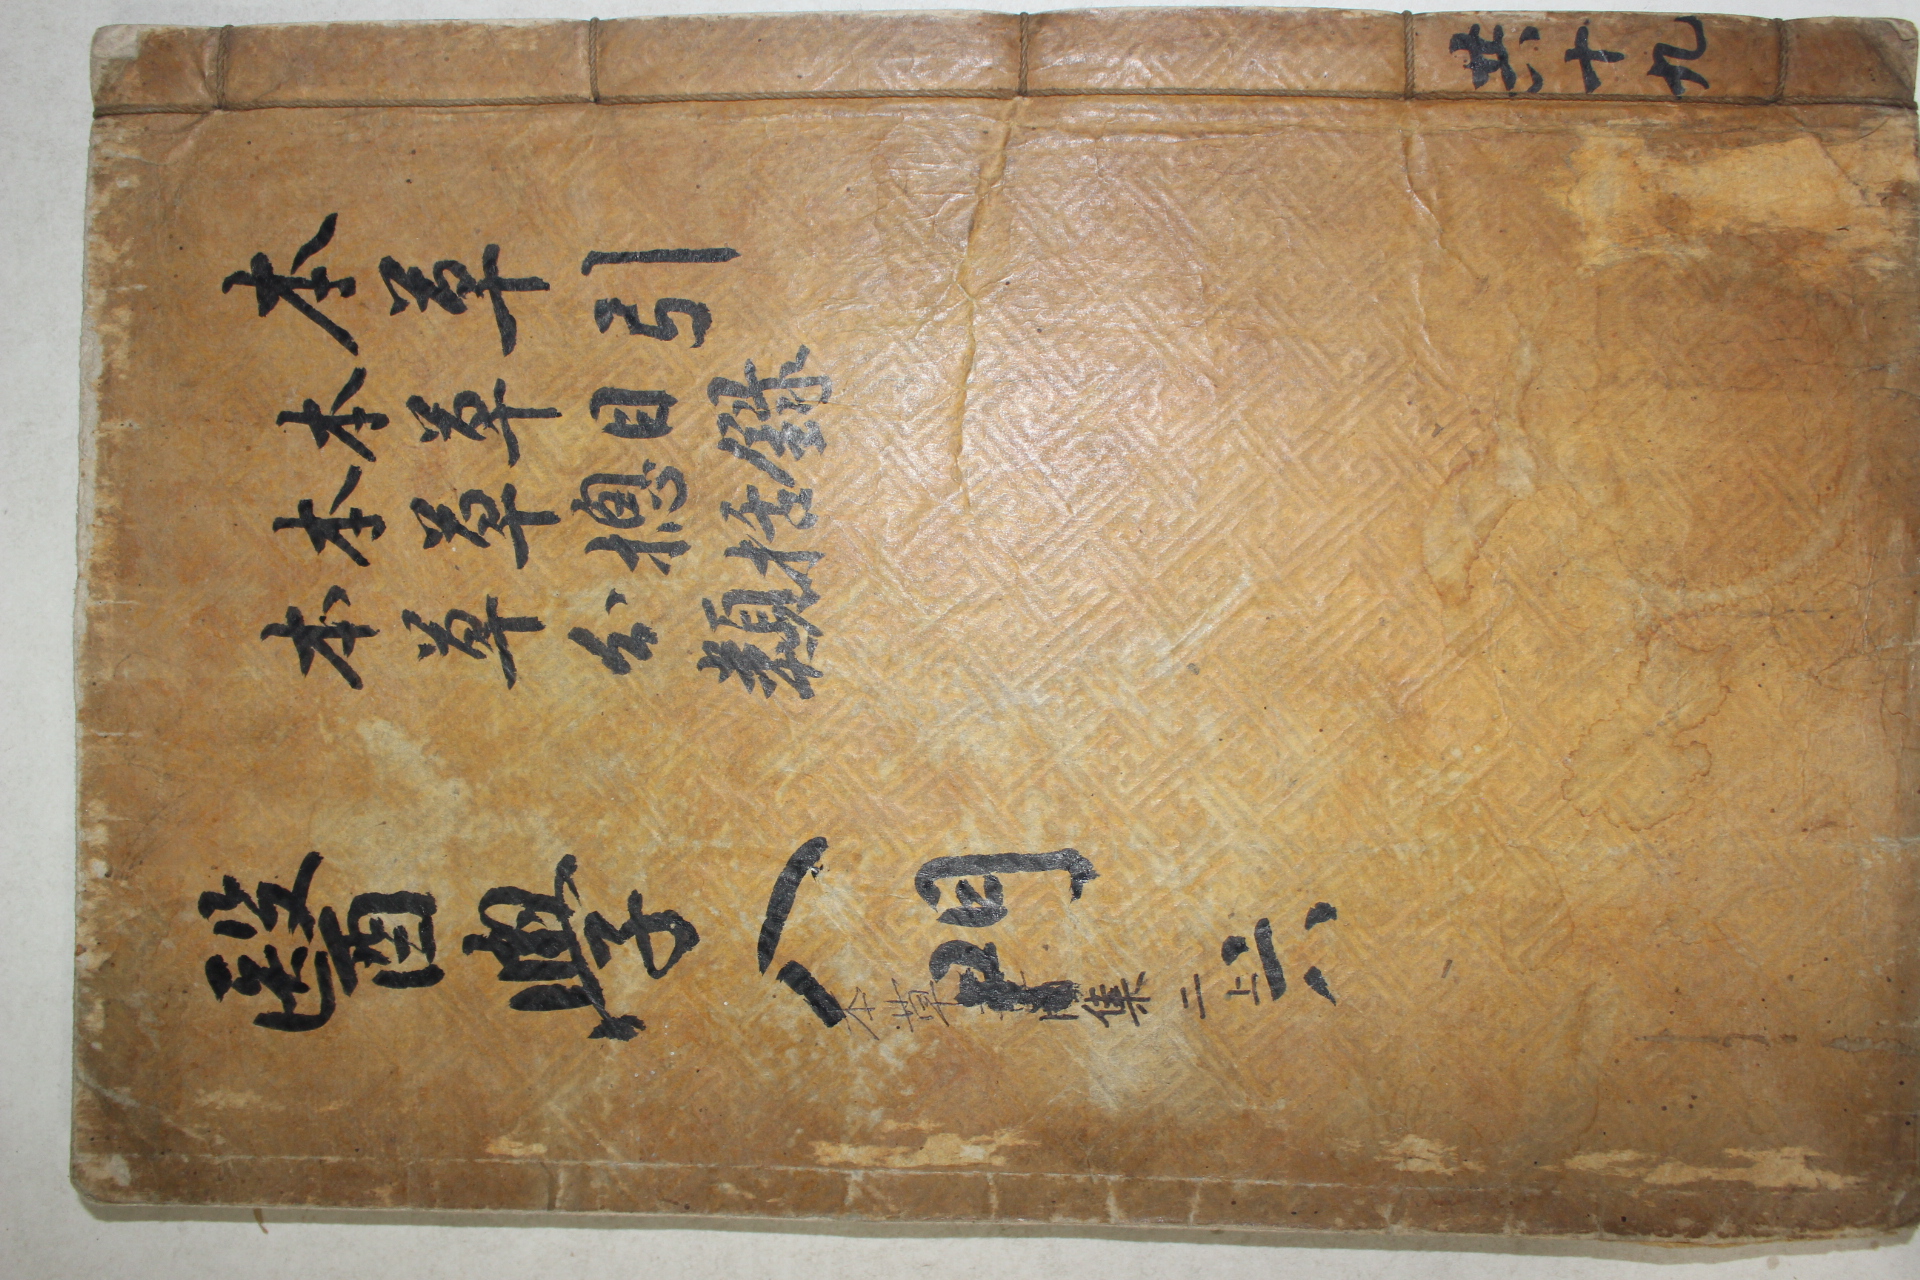 共十九
本草引
本草目錄
本草總括
本草分類
醫學入門 六
本草 集 二上